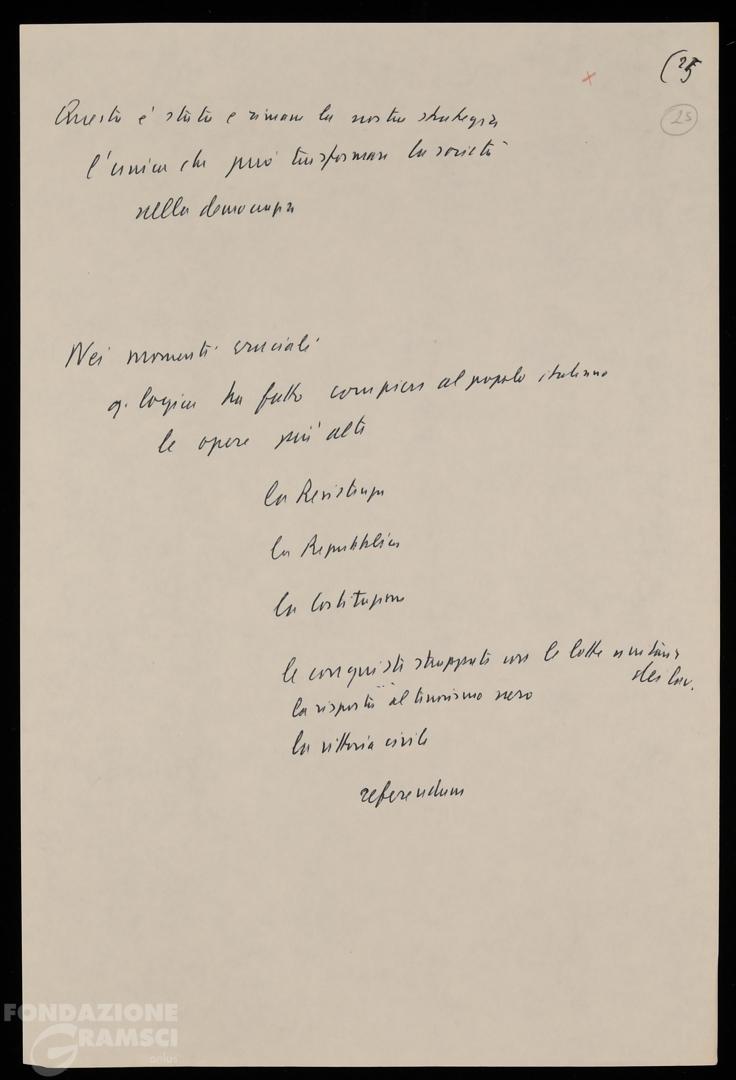 25
25
Questa è stata e rimane la nostra strategia
l'unica che può trasformare la società
nella democrazia
Nei momenti cruciali
q. logica ha fatto compiere al popolo italiano
le opere più alte
la Resistenza
la Repubblica
la Costituzione
le conquiste strappate con le lotte unitarie
dei lav.
la risposta al terrorismo nero
la vittoria civile
referendum
FONDAZIONE
GRAMSCI
onlus